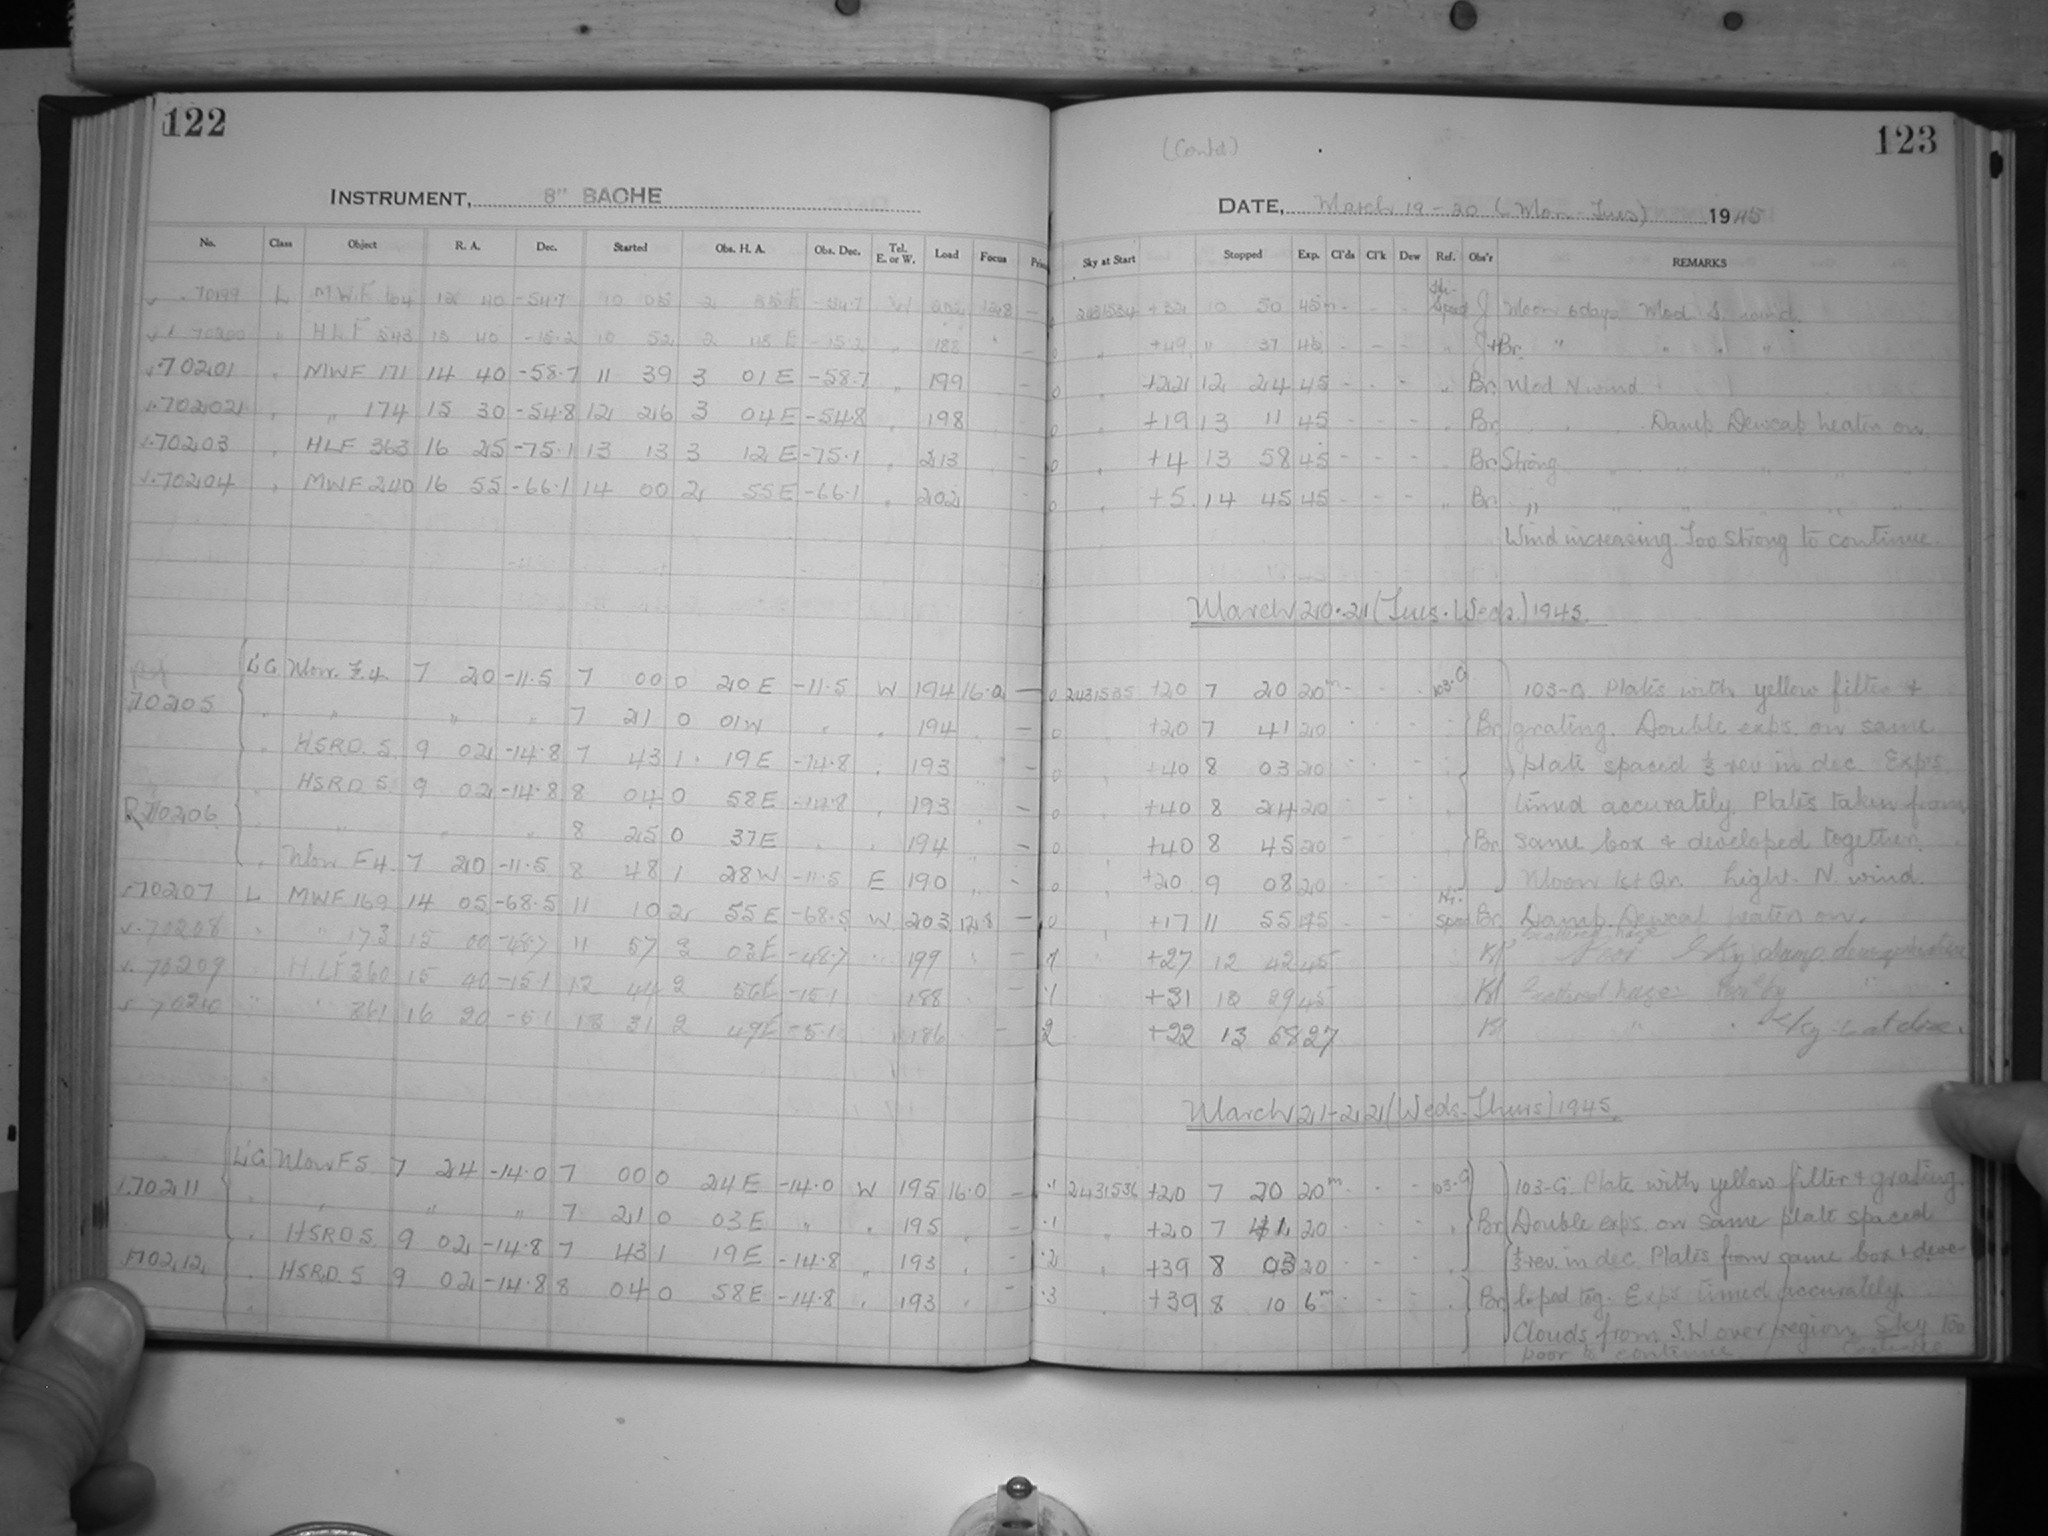 122
INSTRUMENT, 8" BACHE
No. Class Object R. A. Dec. Started Obs. H. A. Obs. Dec. Tel. E. or W. Load Focus
70199 L MWF 104 12 40 -54.7 10 05 2 -54.7 W 202 12.8 -
70200 " HLF 543 13 40 -15.2 10 52 2 48 E -15.2 " 188 -
70201 MWF 171 14 40 -58.7 11 39 3 01 E -58.7 199 -
70202 " 174 15 30 -54.8 12 26 3 04 E -54.8 198
70203 HLF 363 16 25 -75.1 13 13 3 12 E -75.1 213 -
70204 MWF 240 16 55 -66.1 14 00 2 55 E -66.1 202 -
L'G 7 20 -11.5 7 00 0 20 E -11.5 W 194 16.0 -
70205 " " " " 7 21 0 01 W 194 -
HSRD. 5 9 02 -14.8 7 43 1 19 E -14.8 193 -
HSRD 5 9 02 -14.8 8 04 0 58 E -14.8 193 -
R70206 8 25 0 37 E 194 -
F4 7 20 -11.5 8 48 1 28 W -11.5 E 190 -
70207 L MWF 169 14 05 -68.5 11 10 2 55 E -68.5 W 203 12.8 -
70208 " 173 15 00 -48.7 11 57 2 03 E -48.7 " 199 -
70209 HLF 360 15 40 -15.1 12 44 2 56 E -15.1 188
70210 " 361 16 20 -5.1 13 31 2 49 E -5.1 186 -
L'G F5 7 24 -14.0 7 00 0 24 E -14.0 W 195 16.0 -
70211 " " " 7 21 0 03 E " 195 -
HSRD 5 9 02 -14.8 7 43 1 19 E -14.8 193 -
70212 HSRD. 5 9 02 -14.8 8 04 0 58 E -14.8 193 -
123
(Contd)
DATE, March 19-20 (Mon-Tues) 1945
Sky at Start Stopped Exp. Cl'ds Cl'k Dew Ref. Obs'r REMARKS
0 2431534 +32 10 50 45m - - J Moon 6 days Mod S. wind.
0 " +49 " 37 45 - - - J+Br. " " " "
0 +22 12 24 45 - - - Br. Mod N wind
0 +19 13 11 45 - - - Br. Damp Dewcap heater on
0 +4 13 58 45 - - - Br. Strong " " "
0 +5 14 45 45 - - - Br. " " " "
Wind increasing. Too strong to continue.
March 20-21 (Tues-Weds.) 1945.
0 2431535 +20 7 20 20m - - - 103-G 103-G. Plates with yellow filter +
0 +20 7 41 20 Br grating. Double exps. on same
0 +40 8 03 20 plate spaced ½ rev in dec. Exps
0 +40 8 24 20 timed accurately. Plates taken from
0 +40 8 45 20 - Br same box + developed together.
0 +20 9 08 20 Moon 1st Qr. Light N. wind.
0 +17 11 55 45 Br. Damp. Dewcap heater on.
1 +27 12 42 45 Poor Sky damp
1 +31 13 29 45 Scattered haze
2 +22 13 58 27 Sky
March 21-22 (Weds-Thurs) 1945.
.1 2431536 +20 7 20 20m - - - 103-G 103-G. Plate with yellow filter + grating.
.1 " +20 7 41 20 - - - Br Double exps. on same plate spaced
.2 +39 8 03 20 - - - ½ rev. in dec. Plates from same box + deve-
.3 +39 8 10 6m - - - Br loped tog. Exps timed accurately.
Clouds from S.W over region. Sky too
poor to continue